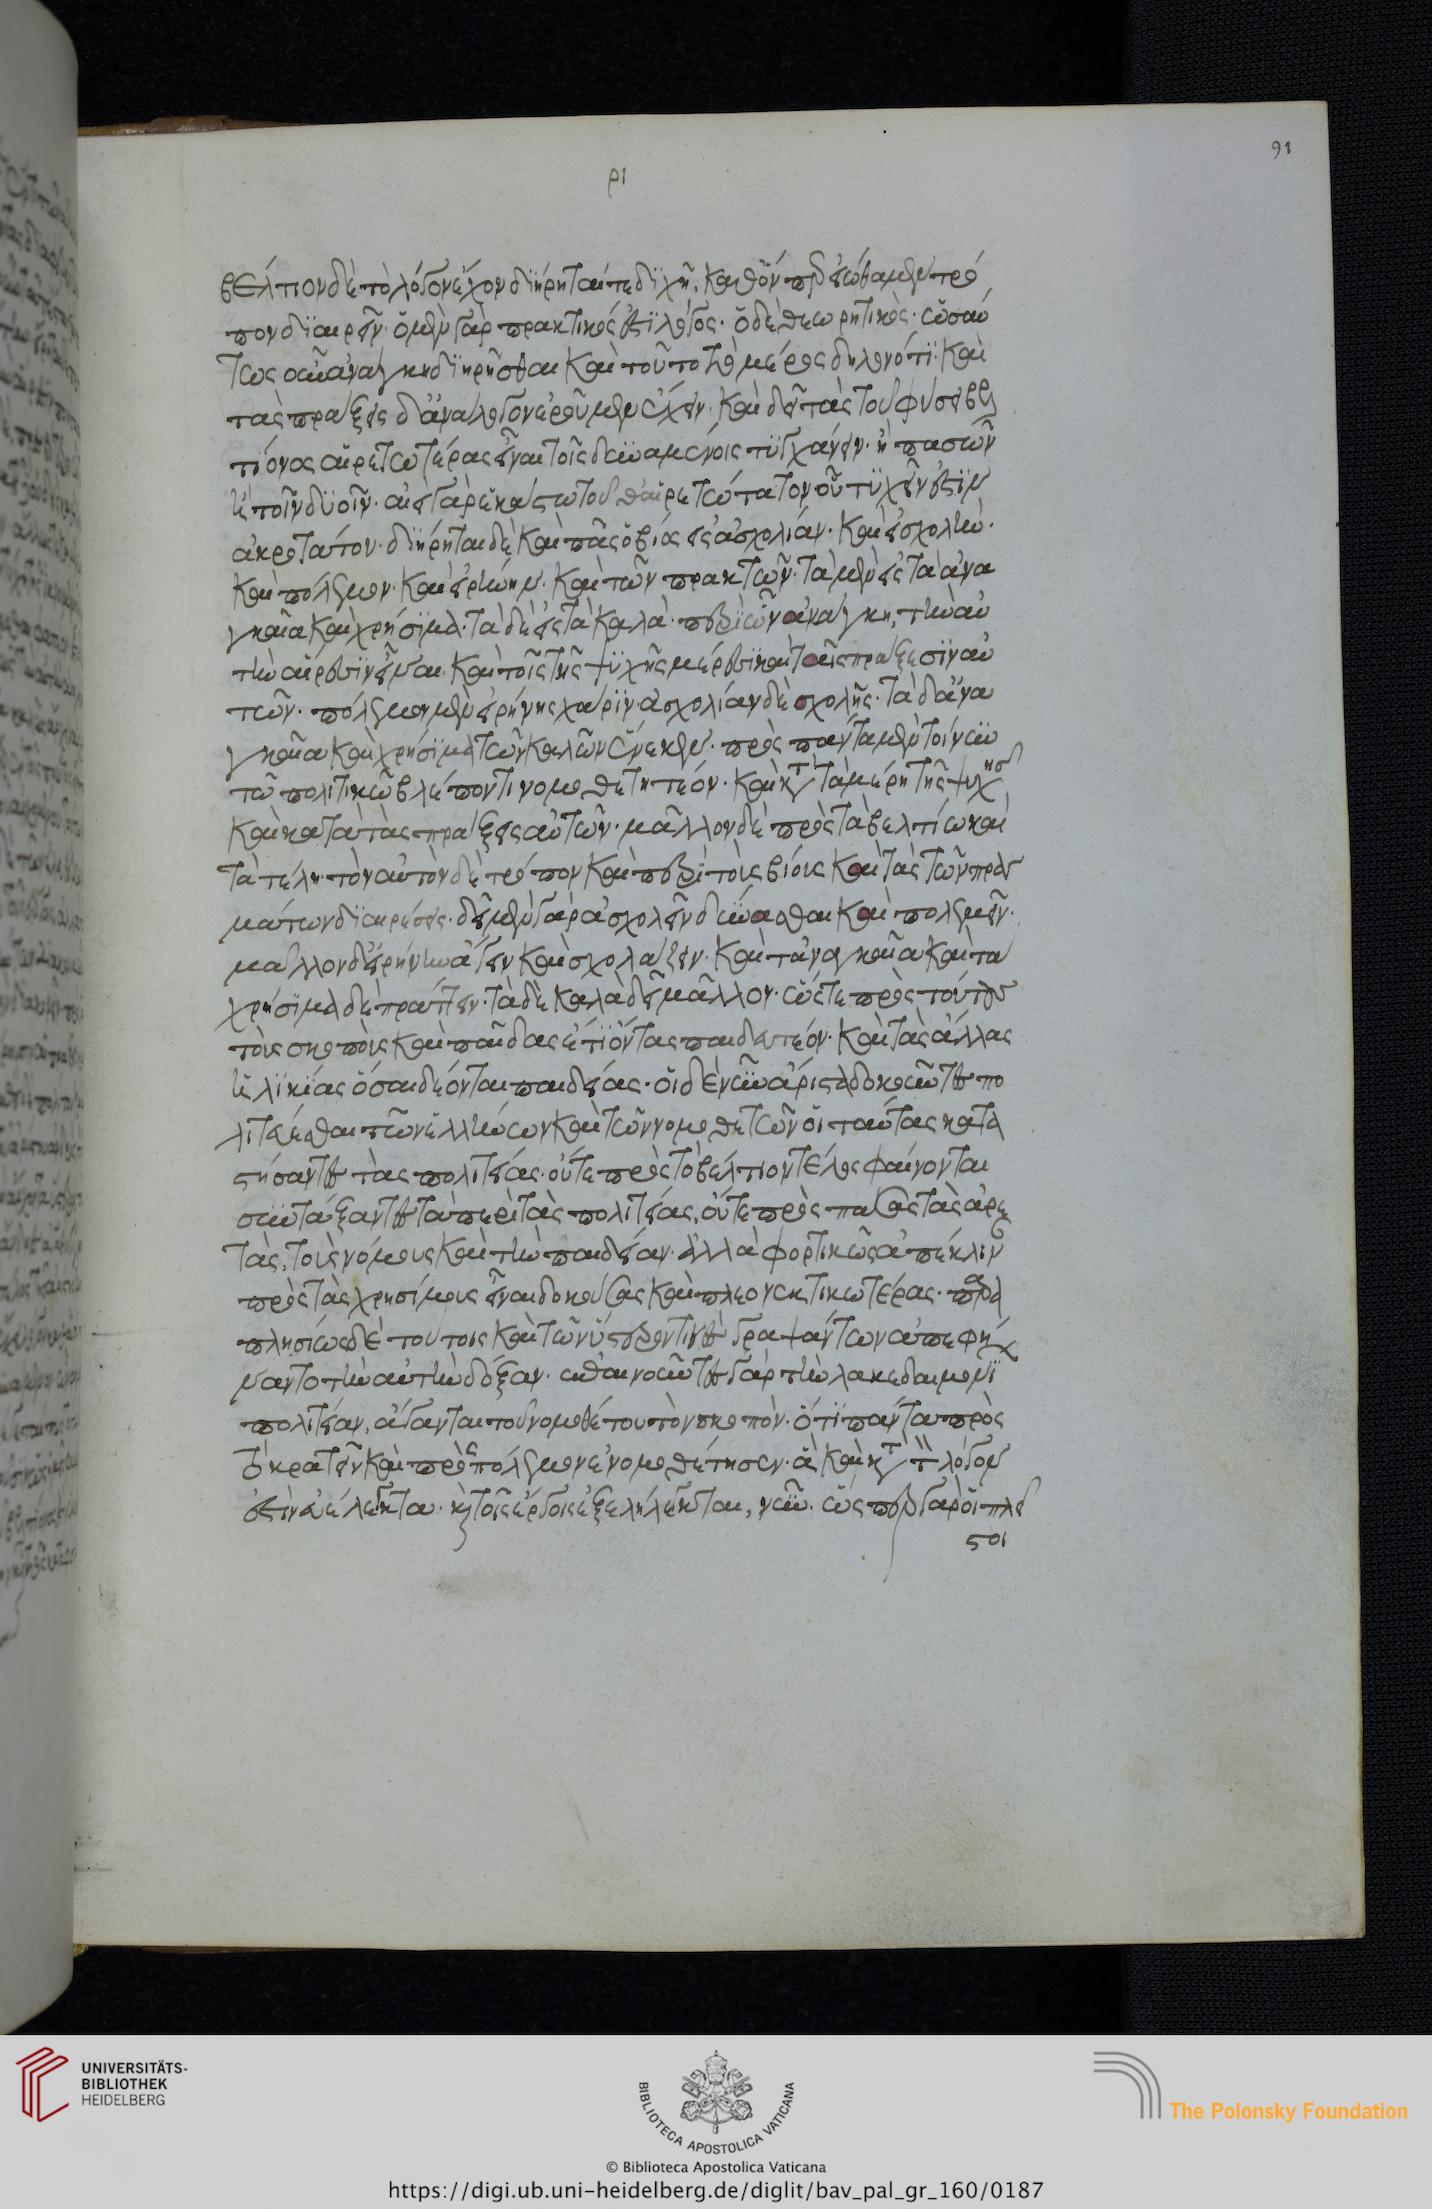 ρι
91
βέλτιον δὲ τὸ λόγον ἔχον διήρηταί τε διχῆ, καθ' ὅνπερ εἰώθαμεν τρό
πον διαιρεῖν· ὁ μὲν γὰρ πρακτικός ἐστι λόγος· ὁ δὲ θεωρητικός· ὡσαύ
τως οὖν ἀνάγκη διηρῆσθαι καὶ τοῦτο τὸ μέρος δηλονότι· καὶ
τὰς πράξεις δ' ἀνάλογον ἐροῦμεν ἔχειν· καὶ δεῖ τὰς τοῦ φύσει βελ
τίονος αἱρετωτέρας εἶναι τοῖς δυναμένοις τυγχάνειν· ἢ πασῶν
ἢ τοῖν δυοῖν· ἀεὶ γὰρ ἑκάστω τοῦθ' αἱρετώτατον οὗ τυχεῖν ἐστὶν
ἀκροτάτου· διήρηται δὲ καὶ πᾶς ὁ βίος εἰς ἀσχολίαν· καὶ εἰς σχολὴν·
καὶ πόλεμον· καὶ εἰρήνην· καὶ τῶν πρακτῶν· τὰ μὲν εἰς τὰ ἀνα
γκαῖα καὶ χρήσιμα· τὰ δὲ εἰς τὰ καλά· περὶ ὧν ἀνάγκη, τὴν αὐ
τὴν αἵρεσιν εἶναι· καὶ τοῖς τῆς ψυχῆς μέρεσι καὶ ταῖς πράξεσιν αὐ
τῶν· πόλεμον μὲν εἰρήνης χάριν· ἀσχολίαν δὲ σχολῆς· τὰ δ' ἀνα
γκαῖα καὶ χρήσιμα τῶν καλῶν ἕνεκεν· πρὸς πάντα μὲν τοίνυν
τῶ πολιτικῶ βλέποντι νομοθετητέον· καὶ κατὰ τὰ μέρη τῆς ψυχῆς
καὶ κατὰ τὰς πράξεις αὐτῶν· μᾶλλον δὲ πρὸς τὰ βελτίω καὶ
τὰ τέλη· τὸν αὐτὸν δὲ τρόπον καὶ περὶ τοὺς βίους καὶ τὰς τῶν πραγ
μάτων διαιρέσεις· δεῖ μὲν γὰρ ἀσχολεῖν δύνασθαι καὶ πολεμεῖν·
μᾶλλον δ' εἰρήνην ἄγειν καὶ σχολάζειν· καὶ τἀναγκαῖα καὶ τὰ
χρήσιμα δὲ πράττειν· τὰ δὲ καλὰ δεῖ μᾶλλον· ὥστε πρὸς τούτους
τοὺς σκοποὺς καὶ παῖδας ἔτι ὄντας παιδευτέον· καὶ τὰς ἄλλας
ἡλικίας ὅσαι δέονται παιδείας· οἱ δὲ νῦν ἄριστα δοκοῦντες πο
λιτεύεσθαι τῶν ἑλλήνων καὶ τῶν νομοθετῶν οἱ ταύτας κατα
στήσαντες τὰς πολιτείας· οὔτε πρὸς τὸ βέλτιον τέλος φαίνονται
συντάξαντες τὰ περὶ τὰς πολιτείας, οὔτε πρὸς πάσας τὰς ἀρε
τὰς, τοὺς νόμους καὶ τὴν παιδείαν· ἀλλὰ φορτικῶς ἀπέκλιναν
πρὸς τὰς χρησίμους εἶναι δοκούσας καὶ πλεονεκτικωτέρας· παρα
πλησίως δὲ τούτοις καὶ τῶν ὕστερόν τινες γραψάντων ἀπεφή
ναντο τὴν αὐτὴν δόξαν· ἐπαινοῦντες γὰρ τὴν λακεδαιμονί
πολιτείαν, ἄγανται τοῦ νομοθέτου τὸν σκοπόν· ὅτι πάντα πρὸς
τὸ κρατεῖν καὶ πρὸς πόλεμον ἐνομοθέτησεν· ἃ καὶ κατὰ τὸν λόγον
ἐστὶν εὐέλεγκτα· καὶ τοῖς ἔργοις ἐξελήλεγκται, νῦν· ὥσπερ γὰρ οἱ πλεῖ
στοι
UNIVERSITÄTS-
BIBLIOTHEK
HEIDELBERG
BIBLIOTECA APOSTOLICA VATICANA
The Polonsky Foundation
© Biblioteca Apostolica Vaticana
https://digi.ub.uni-heidelberg.de/diglit/bav_pal_gr_160/0187